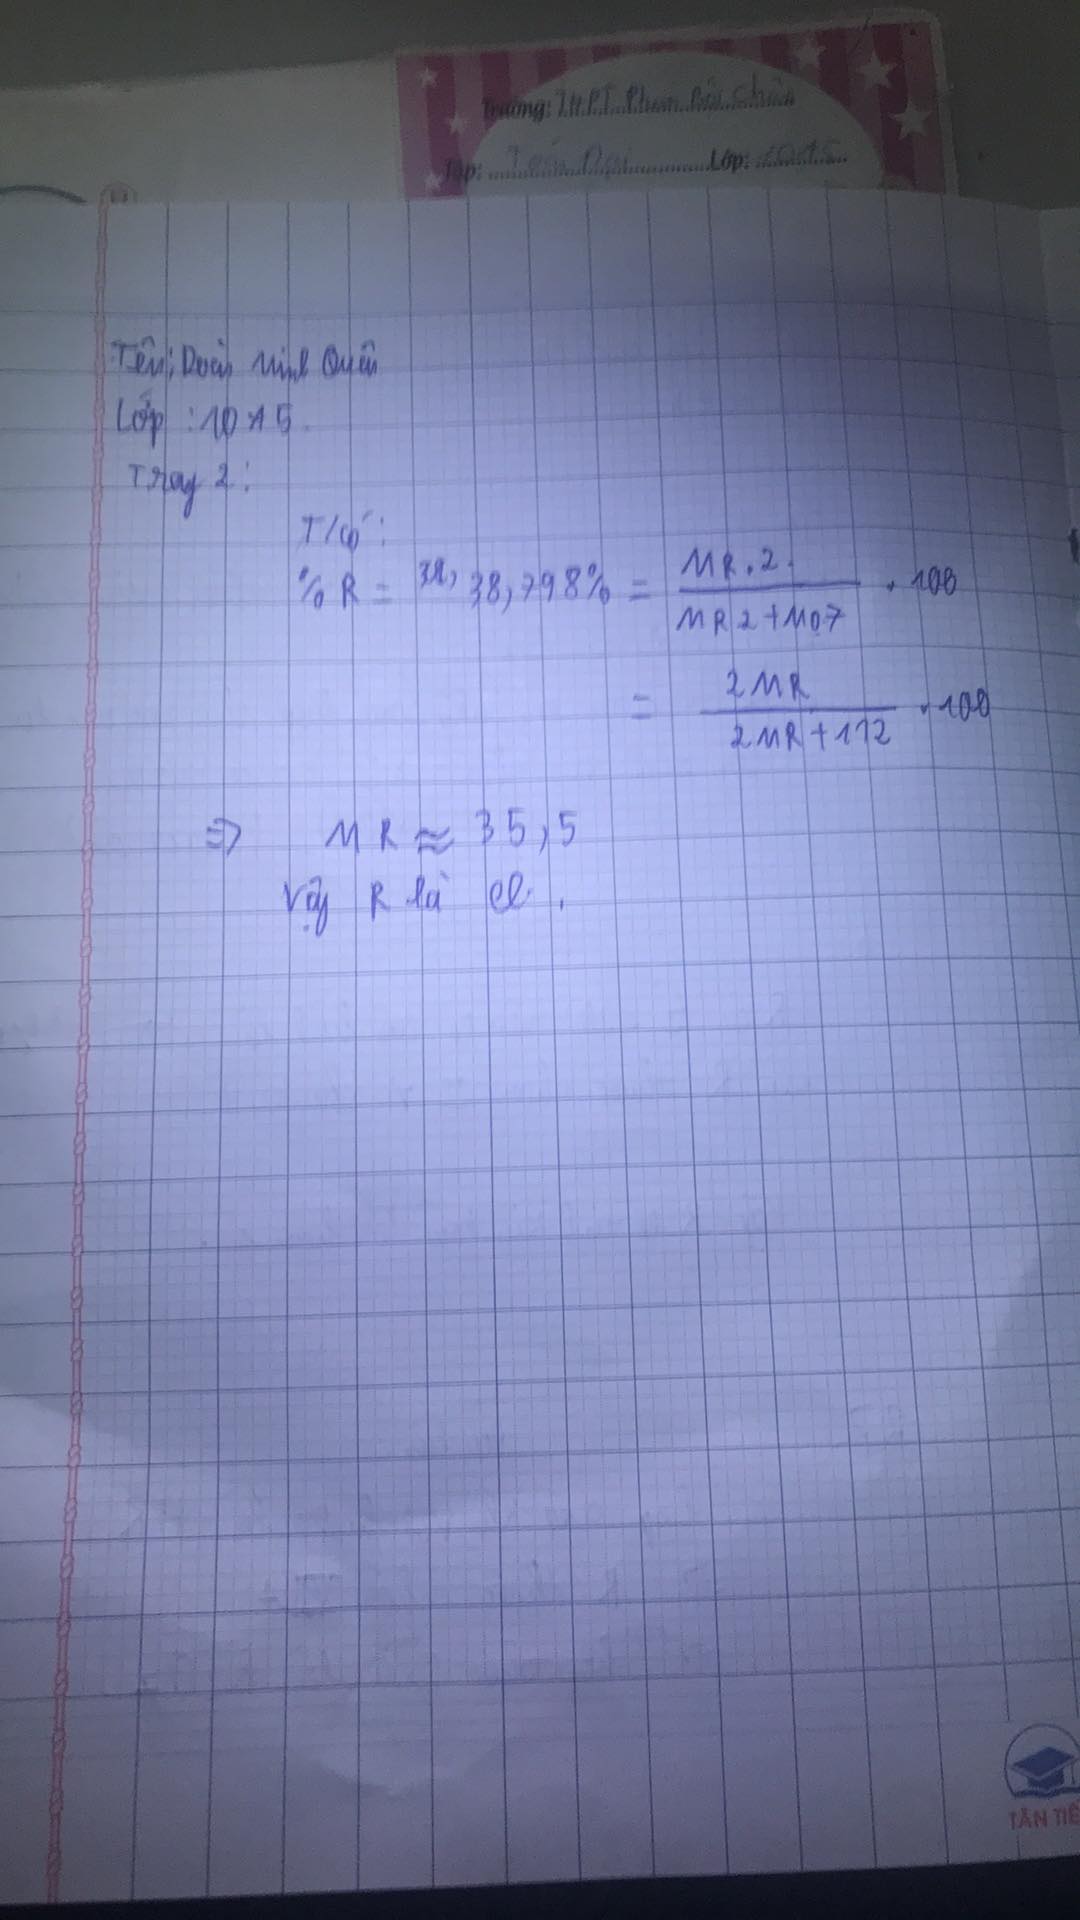 Trường: THPT Phan Bội Châu
Tập: Lớp: 10A5
Tên: Minh Quân
Lớp: 10A5
Tray 2:
T/có:
% R = 38, 38,798% = MR.2 / MR2+MO7 . 100
= 2MR / 2MR+112 . 100
=> MR ≈ 35,5
Vậy R là Cl.
TÂN TIẾ